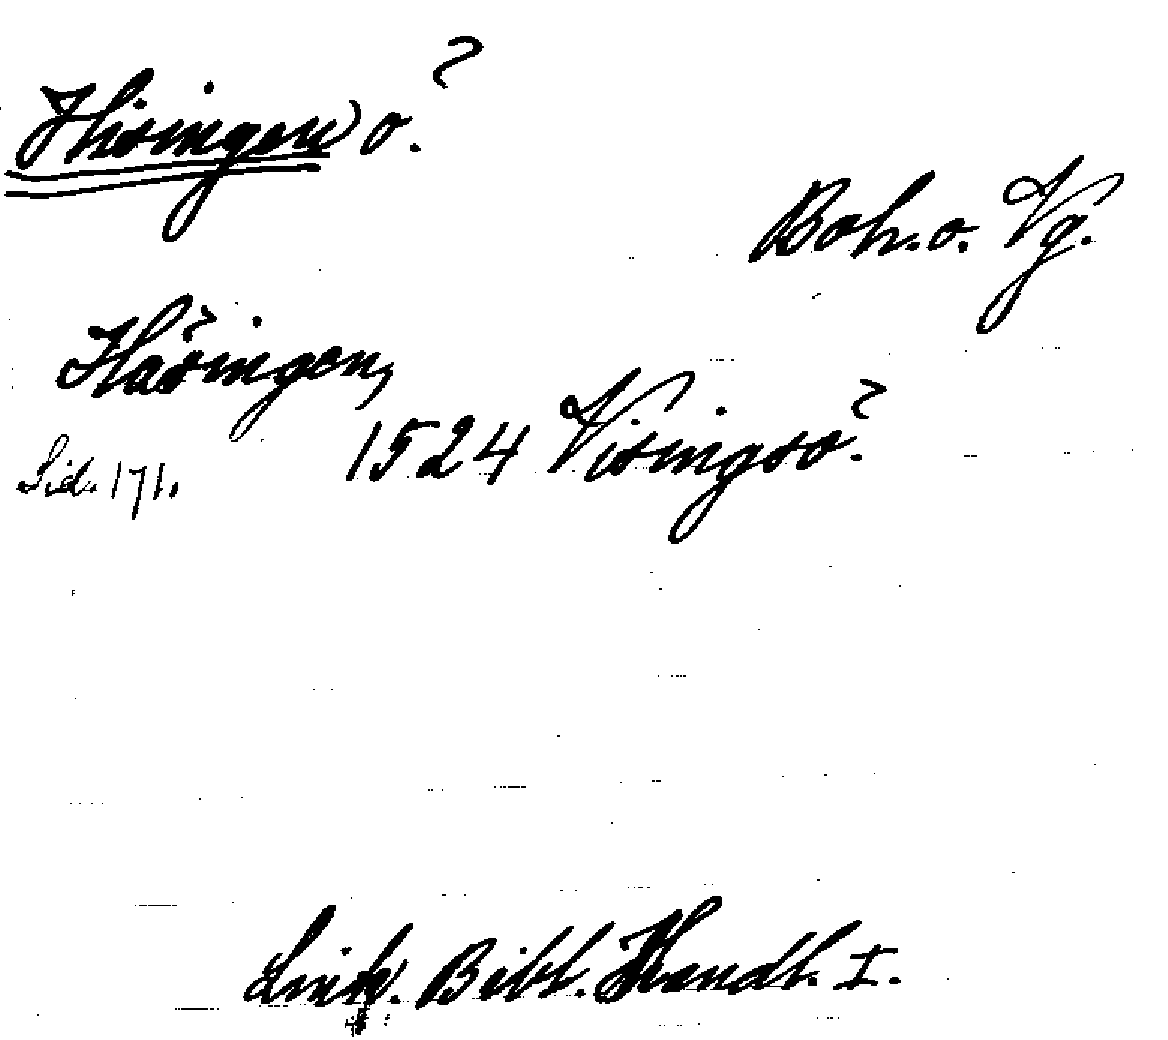 Hisingen ö.
Boh. o. Vg.
Häsingen,
1524 Visingsö.
Sid. 171.
Link. Bibl. Handl. I.